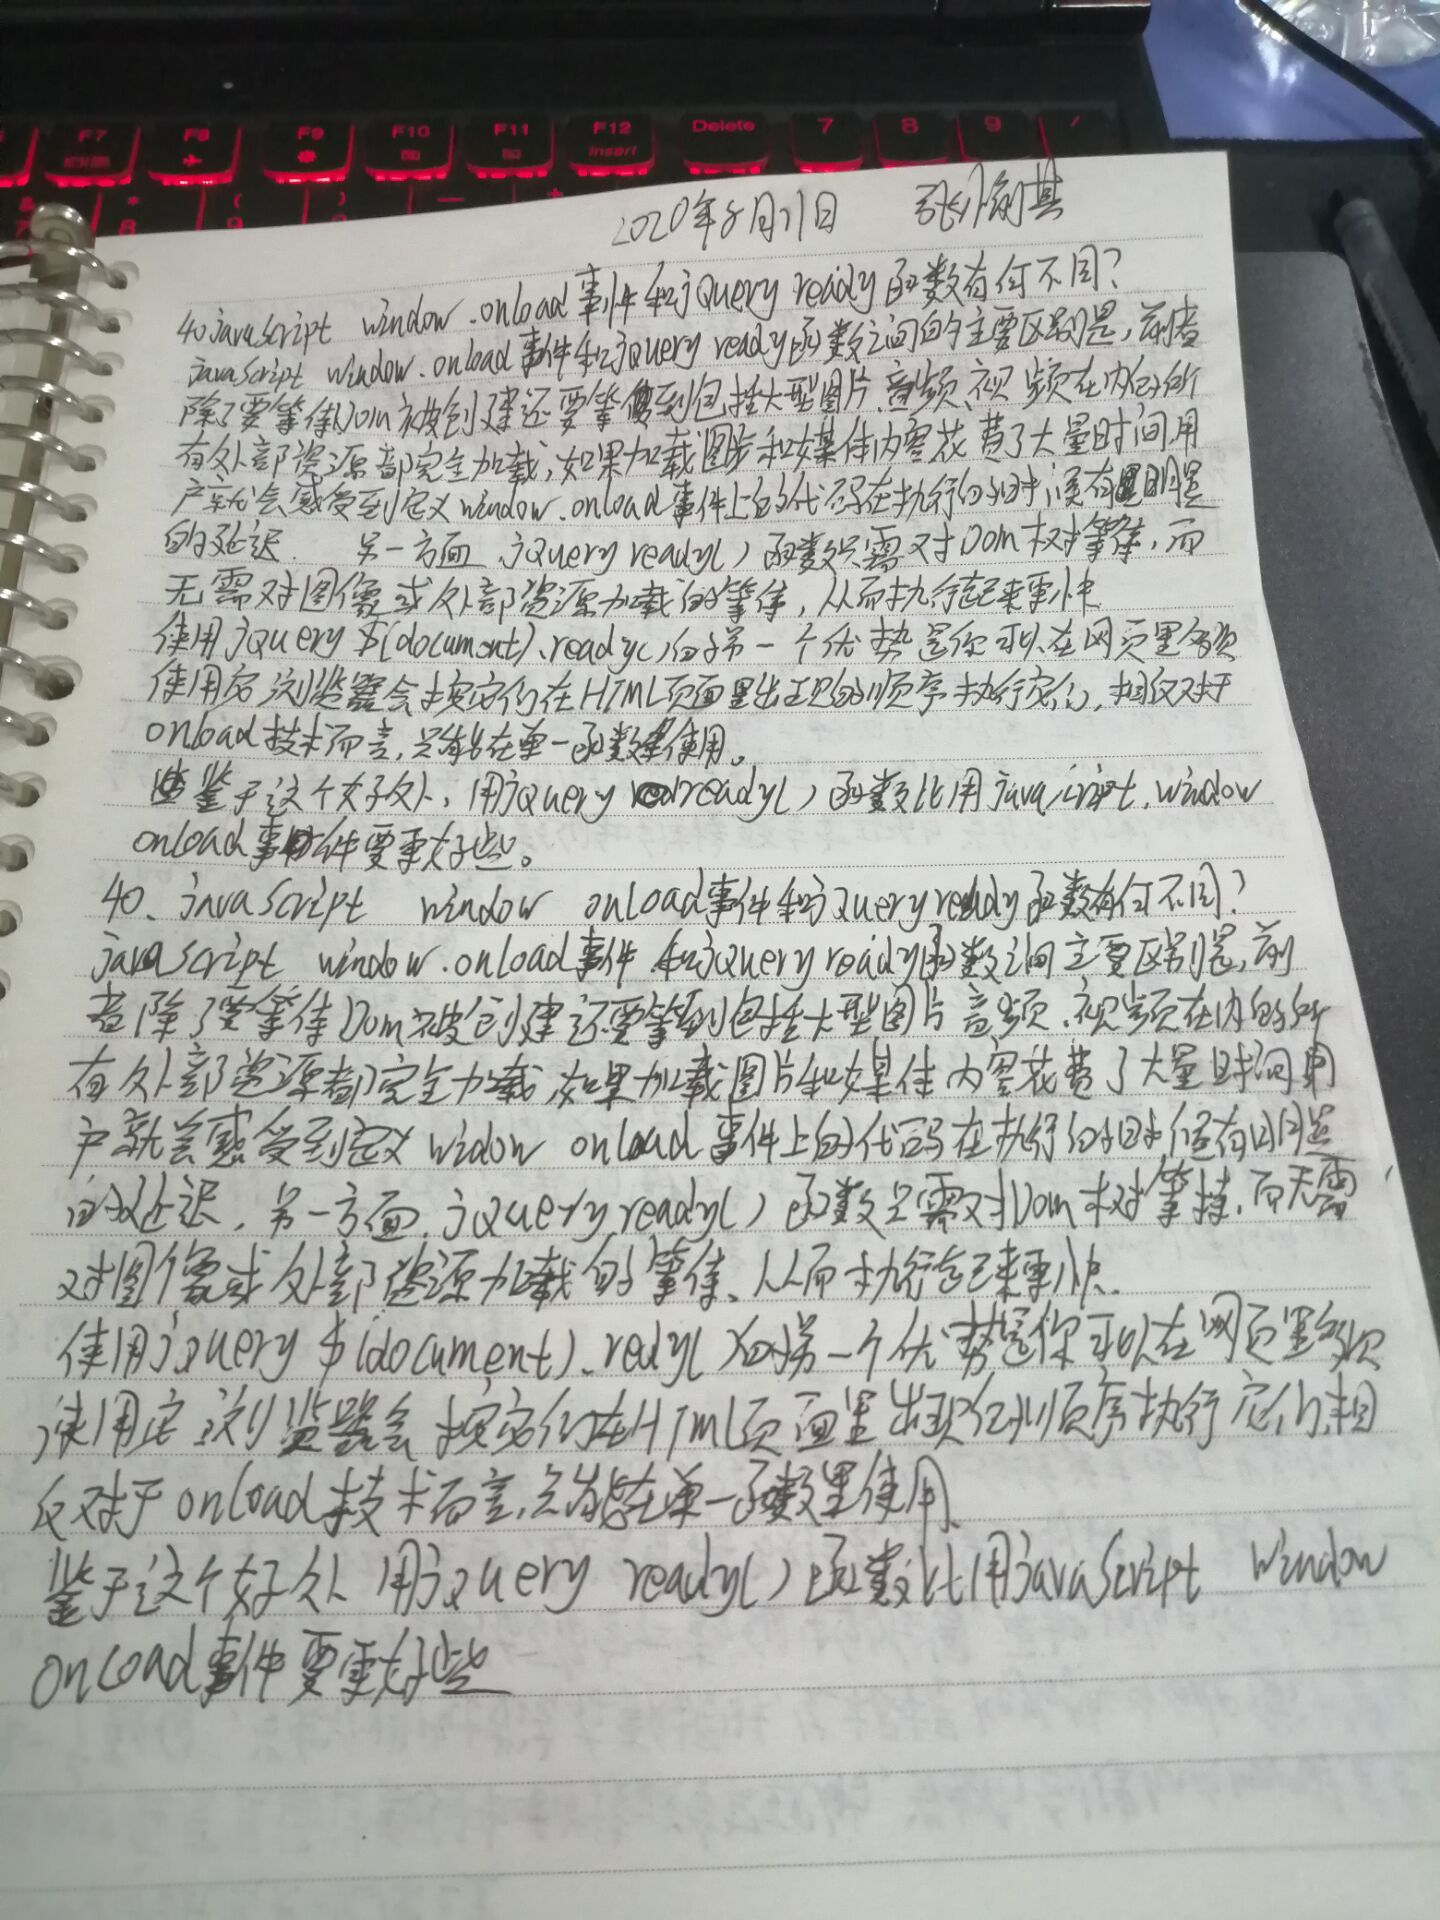 F7 F8 F9 F10 F11 F12 Delete 7 8 9 /
Insert
& * ( ) — +
7 8 9
2020年8月21日
40 javascript window.onload事件和jQuery ready函数有何不同?
javascript window.onload事件和jQuery ready函数之间的主要区别是,前者
除了要等待Dom被创建还要等到包括大型图片、音频、视频在内的所
有外部资源都完全加载,如果加载图片和媒体内容花费了大量时间用
户就会感受到定义window.onload事件上的代码在执行的时候有明显
的延迟. 另一方面,jQuery ready()函数只需对Dom树等待,而
无需对图像或外部资源加载的等待,从而执行起来更快
使用jQuery $(document).ready()的另一个优势是你可以在网页里多次
使用它 浏览器会按它们在HTML页面里出现的顺序执行它们,相反对于
onload技术而言,只能在单一函数里使用。
鉴于这个好处,用jQuery ready()函数比用javascript.window
onload事件要更好些。
40、javascript window onload事件和jQuery ready函数有何不同?
javascript window.onload事件和jQuery ready函数之间主要区别是,前
者除了要等待Dom被创建还要等到包括大型图片音频、视频在内的所
有外部资源都完全加载,如果加载图片和媒体内容花费了大量时间用
户就会感受到定义widow onload事件上的代码在执行的时候有明显
的延迟,另一方面,jQuery ready()函数只需对Dom树等持,而无需
对图像或外部资源加载的等待、从而执行起来更快.
使用jQuery $(document).redy()的另一个优势是你可以在网页里多次
使用它 浏览器会按它们在HTML页面里出现的顺序执行它们,相
反对于onload技术而言,只能在单一函数里使用、
鉴于这个好处 用jQuery ready()函数比用javascript window
onload事件要更好些